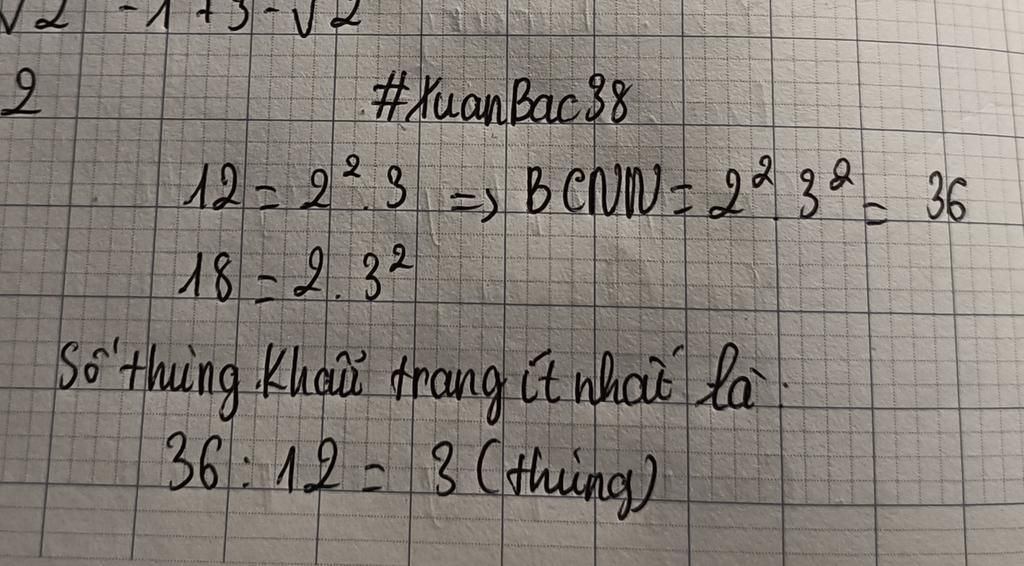 √2 - 1 + 3 - √2
2
#XuanBac38
12 = 2². 3 => BCNN = 2² 3² = 36
18 = 2. 3²
Số thùng Khẩu trang ít nhất là
36 : 12 = 3 (thùng)